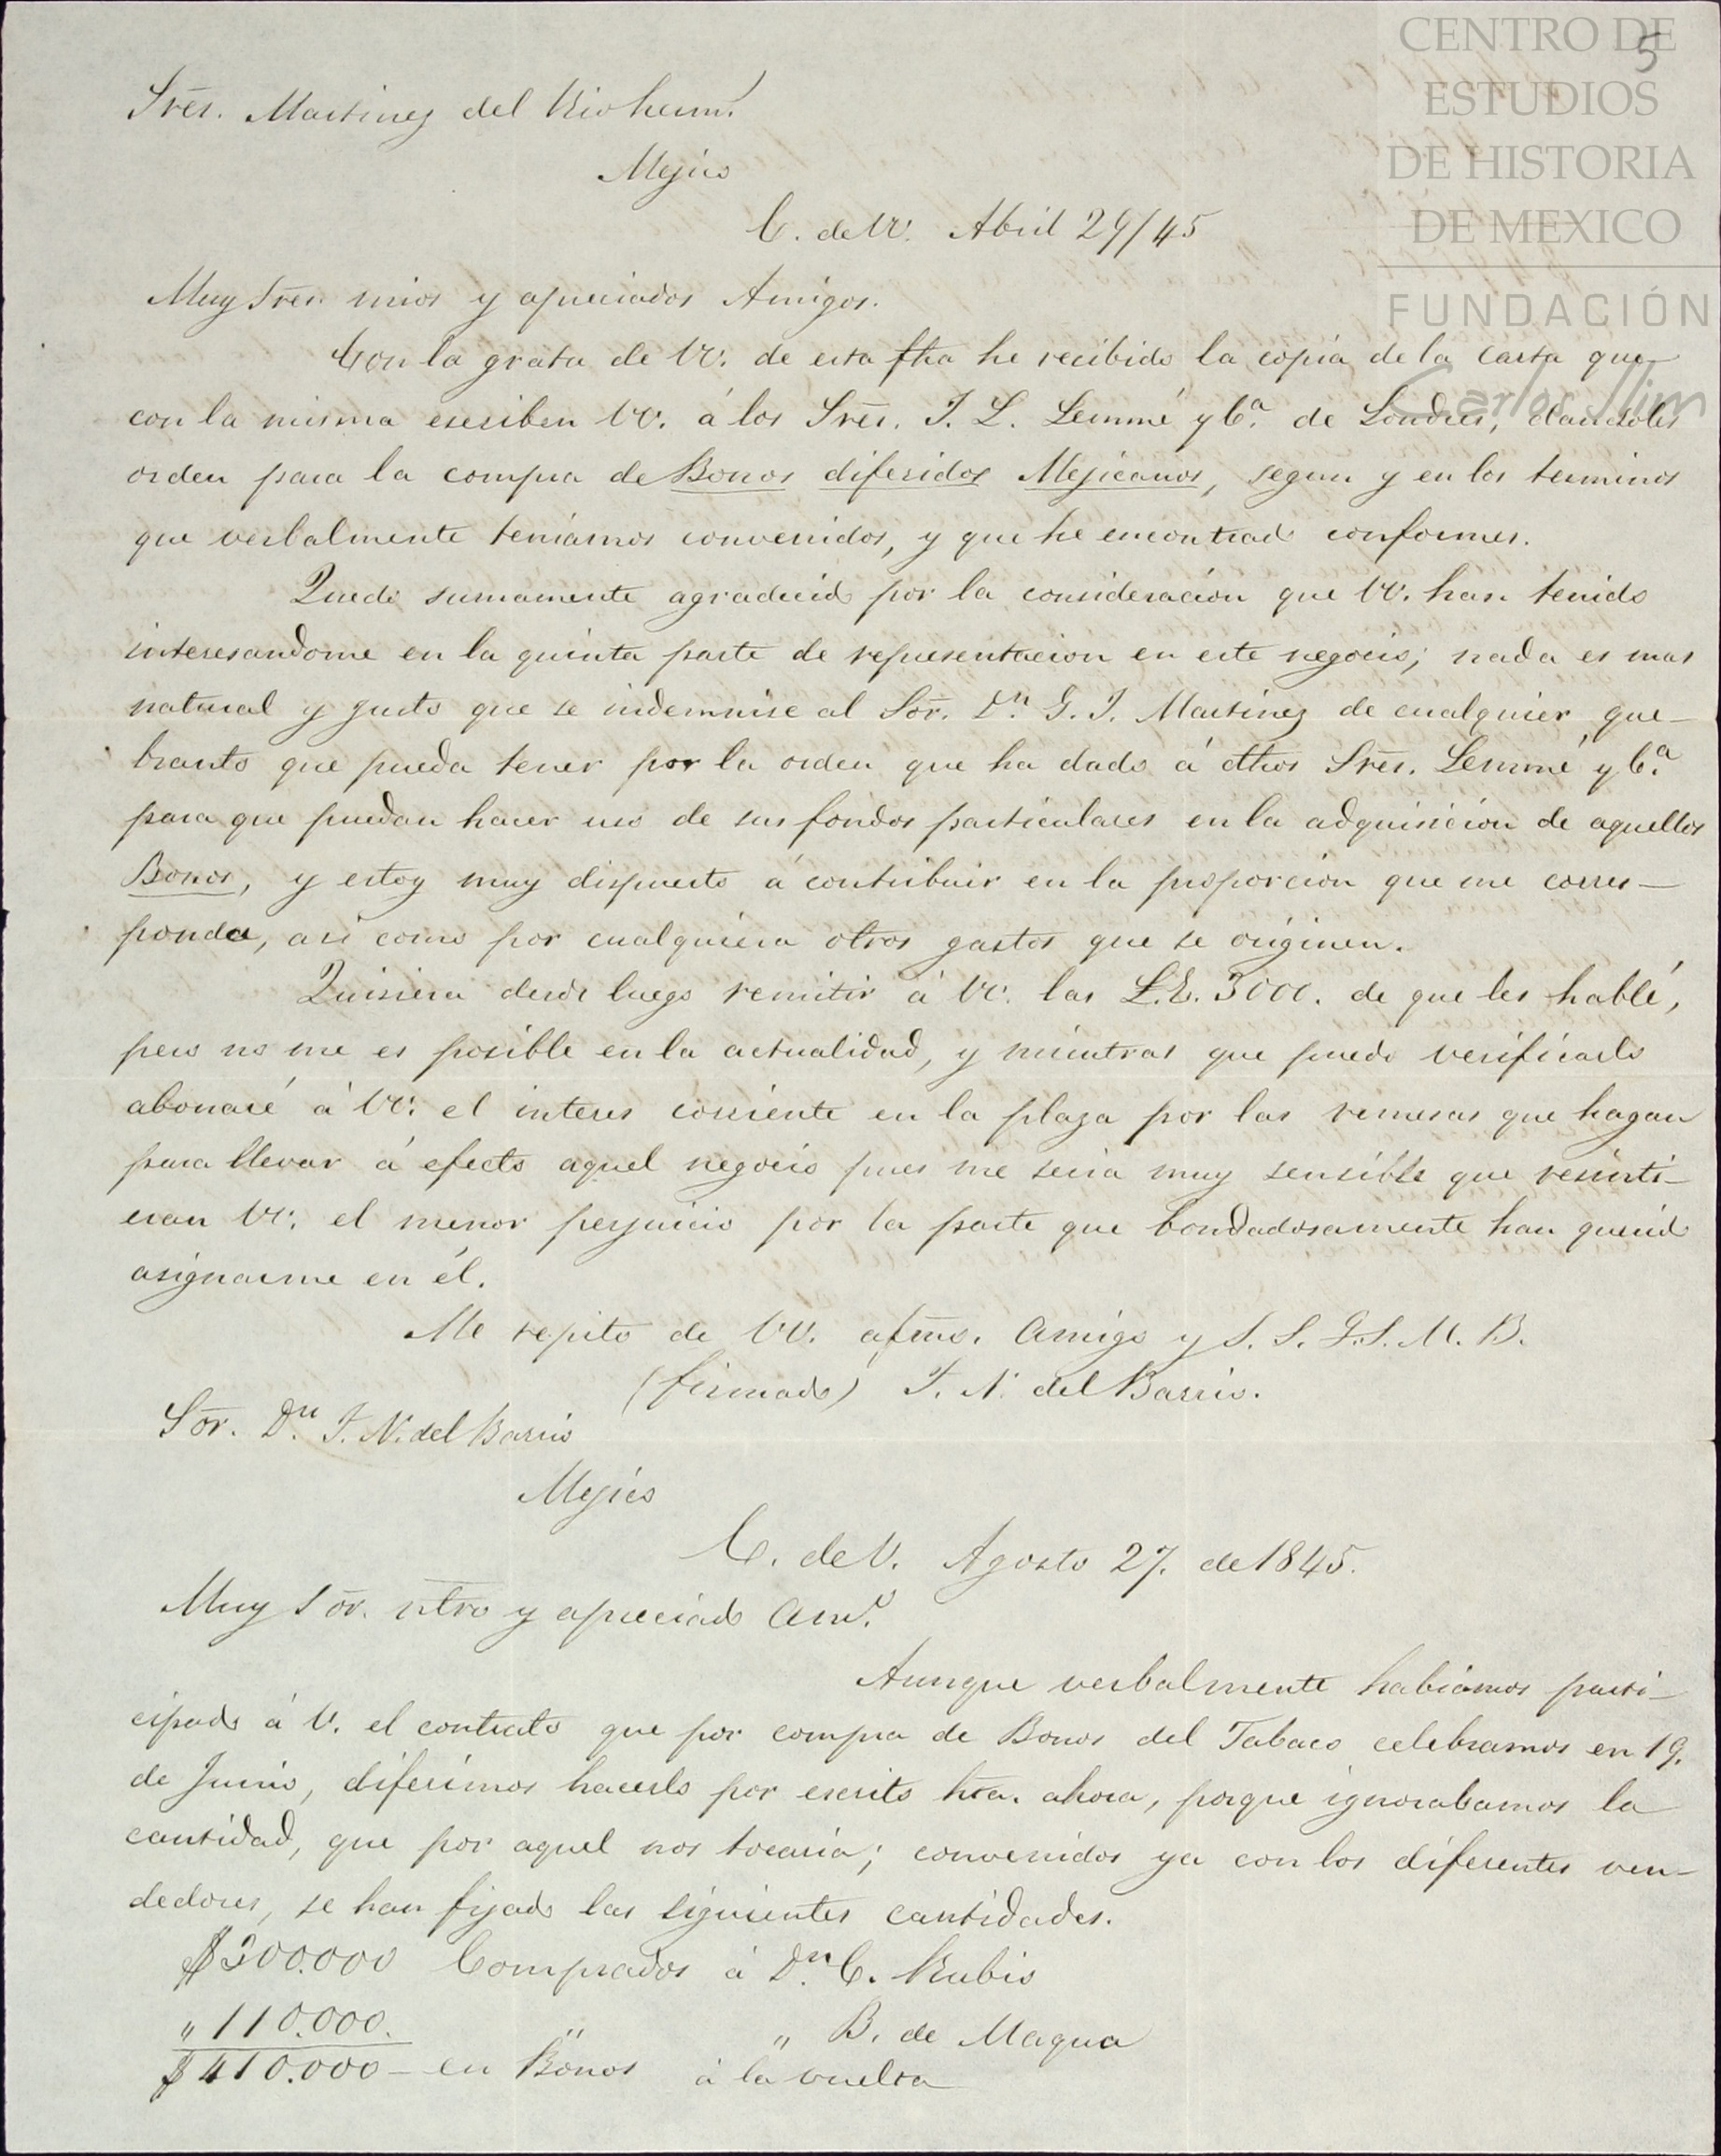 CENTRO DE
ESTUDIOS
DE HISTORIA
DE MEXICO
FUNDACIÓN
Carlos Slim
5
Sres. Martinez del Rio herm.s
Mejico
C. de VV. Abril 29/45
Muy Sres. mios y apreciados Amigos.
Con la grata de VV. de esta fha he recibido la copia de la carta que
con la misma escriben VV. á los Sres. J. L. Lemmé y C.a de Londres, dandoles
orden para la compra de Bonos diferidos Mejicanos, segun y en los terminos
que verbalmente teniamos convenidos, y que he encontrado conformes.
Quedo sumamente agradecido por la consideracion que VV. han tenido
interesandome en la quinta parte de representacion en este negocio; nada es mas
natural y justo que se indemnise al Sor. Dn. G. J. Martinez de cualquier que-
branto que pueda tener por la orden que ha dado á dthos Sres. Lemmé y C.a
para que puedan hacer uso de sus fondos particulares en la adquisicion de aquellos
Bonos, y estoy muy dispuesto á contribuir en la proporcion que me corres-
ponda, asi como por cualquiera otros gastos que se originen.
Quisiera desde luego remitir á VV. las L.E. 3000. de que les hablé,
pero no me es posible en la actualidad, y mientras que puedo verificarlo
abonaré á VV. el interes corriente en la plaza por las remesas que hagan
para llevar á efecto aquel negocio pues me seria muy sensible que resinti-
eran VV. el menor perjuicio por la parte que bondadosamente han querido
asignarme en él.
Me repito de VV. afmo. Amigo y S. S. Q.S.M.B.
(firmado) F. N. del Barrio.
Sor. Dn. F. N. del Barrio
Mejico
C. de V. Agosto 27. de 1845.
Muy Sor. ntro y apreciado Am.o
Aunque verbalmente habiamos parti-
cipado á V. el contrato que por compra de Bonos del Tabaco celebramos en 19.
de Junio, diferimos hacerlo por escrito hta. ahora, porque ignorabamos la
cantidad, que por aquel nos tocaria; convenidos ya con los diferentes ven-
dedores, se han fijado las siguientes cantidades.
$300.000 Comprados á Dn. C. Rubio
" 110.000. " " B. de Maqua
$410.000 - en Bonos á la vuelta